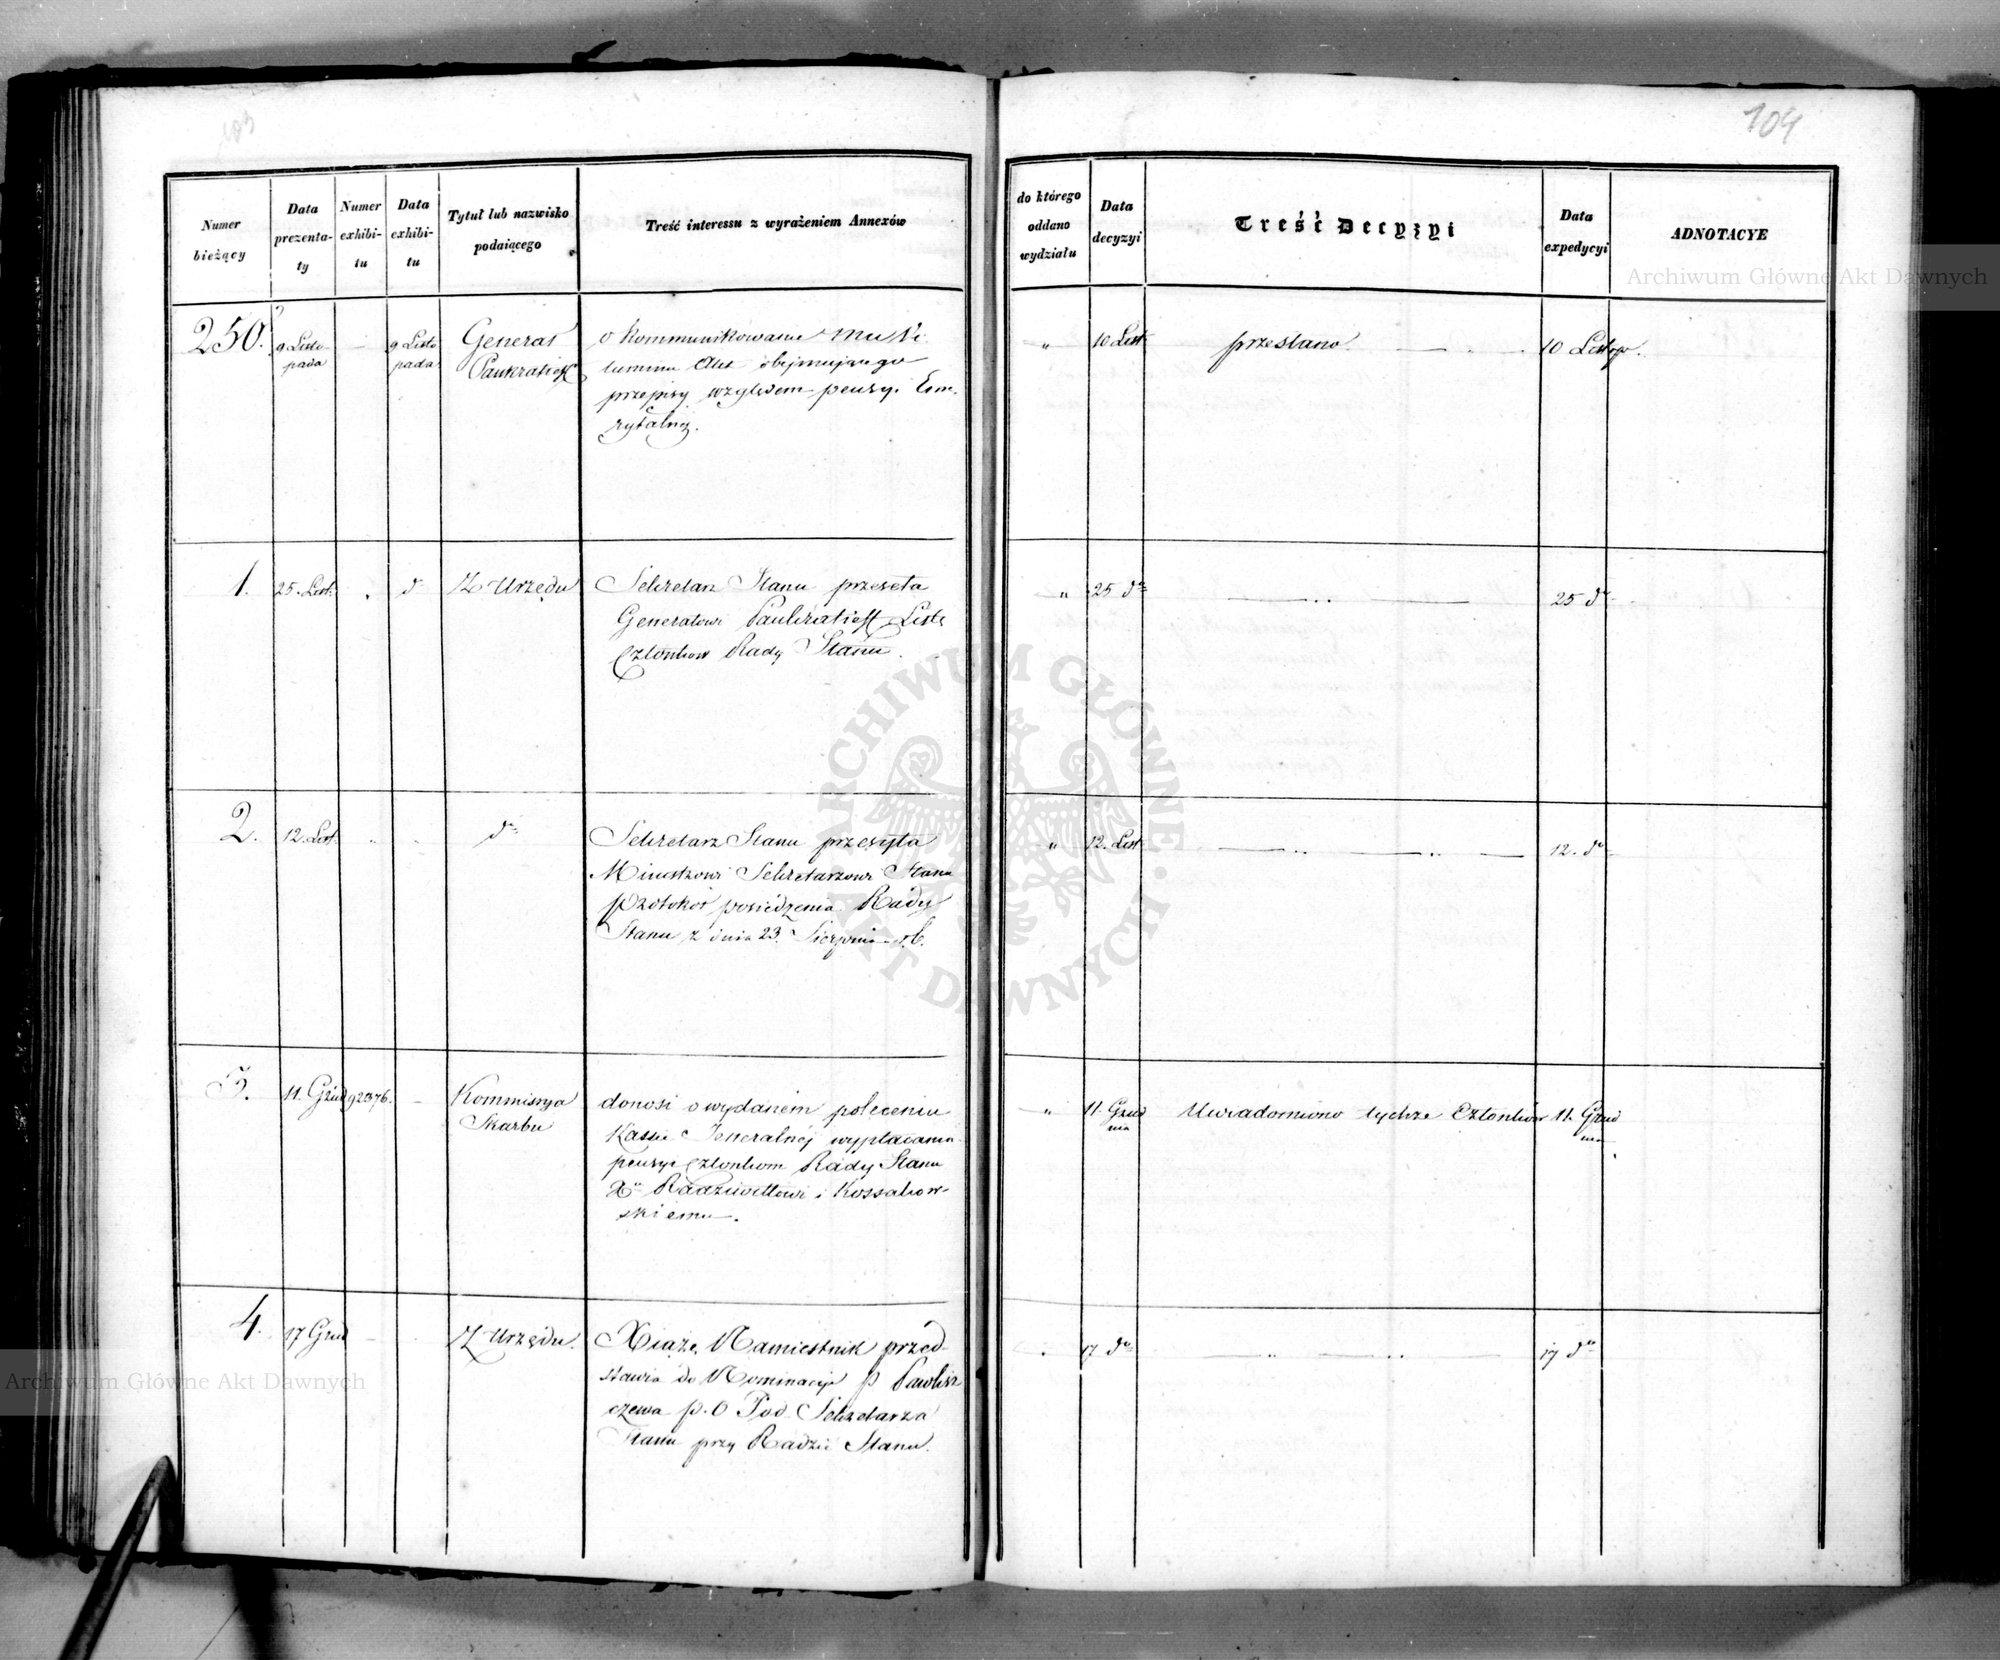 103
104
Numer bieżący
Data prezenta-ty
Numer exhibi-tu
Data exhibi-tu
Tytuł lub nazwisko podaiącego
Treść interessu z wyrażeniem Annexów
do którego oddano wydziału
Data decyzyi
Treść Decyzyi
Data expedycyi
ADNOTACYE
250.
9 Listo-
pada
9 Listo
pada
Generał
Pankratieff
o kommunikowanie mu
przepisy względem pensyi Eme-
rytalnéj.
"
10 List.
przesłano.
10 Listop.
1.
25. List.
d
Z Urzędu
Sekretarz Stanu przeseła
Generałowi Pankratieff Listę
Członków Rady Stanu.
"
25 do
25 do
2.
12. List.
do
Sekretarz Stanu przesyła
Ministrowi Sekretarzowi Stanu
protokół posiedzenia Rady
Stanu z dnia 23. Sierpnia r.b.
"
12. List
12. do
3.
11. Grud
92376.
Kommissya
Skarbu
donosi o wydaném poleceniu
Kassie Jeneralnéj wypłacania
pensyi członkom Rady Stanu
Xu Radziwiłłowi i Kossakow-
skiemu.
"
11. Grud
nia
Uwiadomiono tychże Członków
11. Grud
nia
4.
17 Grud
Z Urzędu.
Xiąże Namiestnik przed-
stawia do Nominacyi p Pawlisz
czewa p. O Pod Sekretarza
Stanu przy Radzie Stanu.
17 do
17 do
Archiwum Główne Akt Dawnych
ARCHIWUM GŁÓWNE AKT DAWNYCH
Archiwum Główne Akt Dawnych